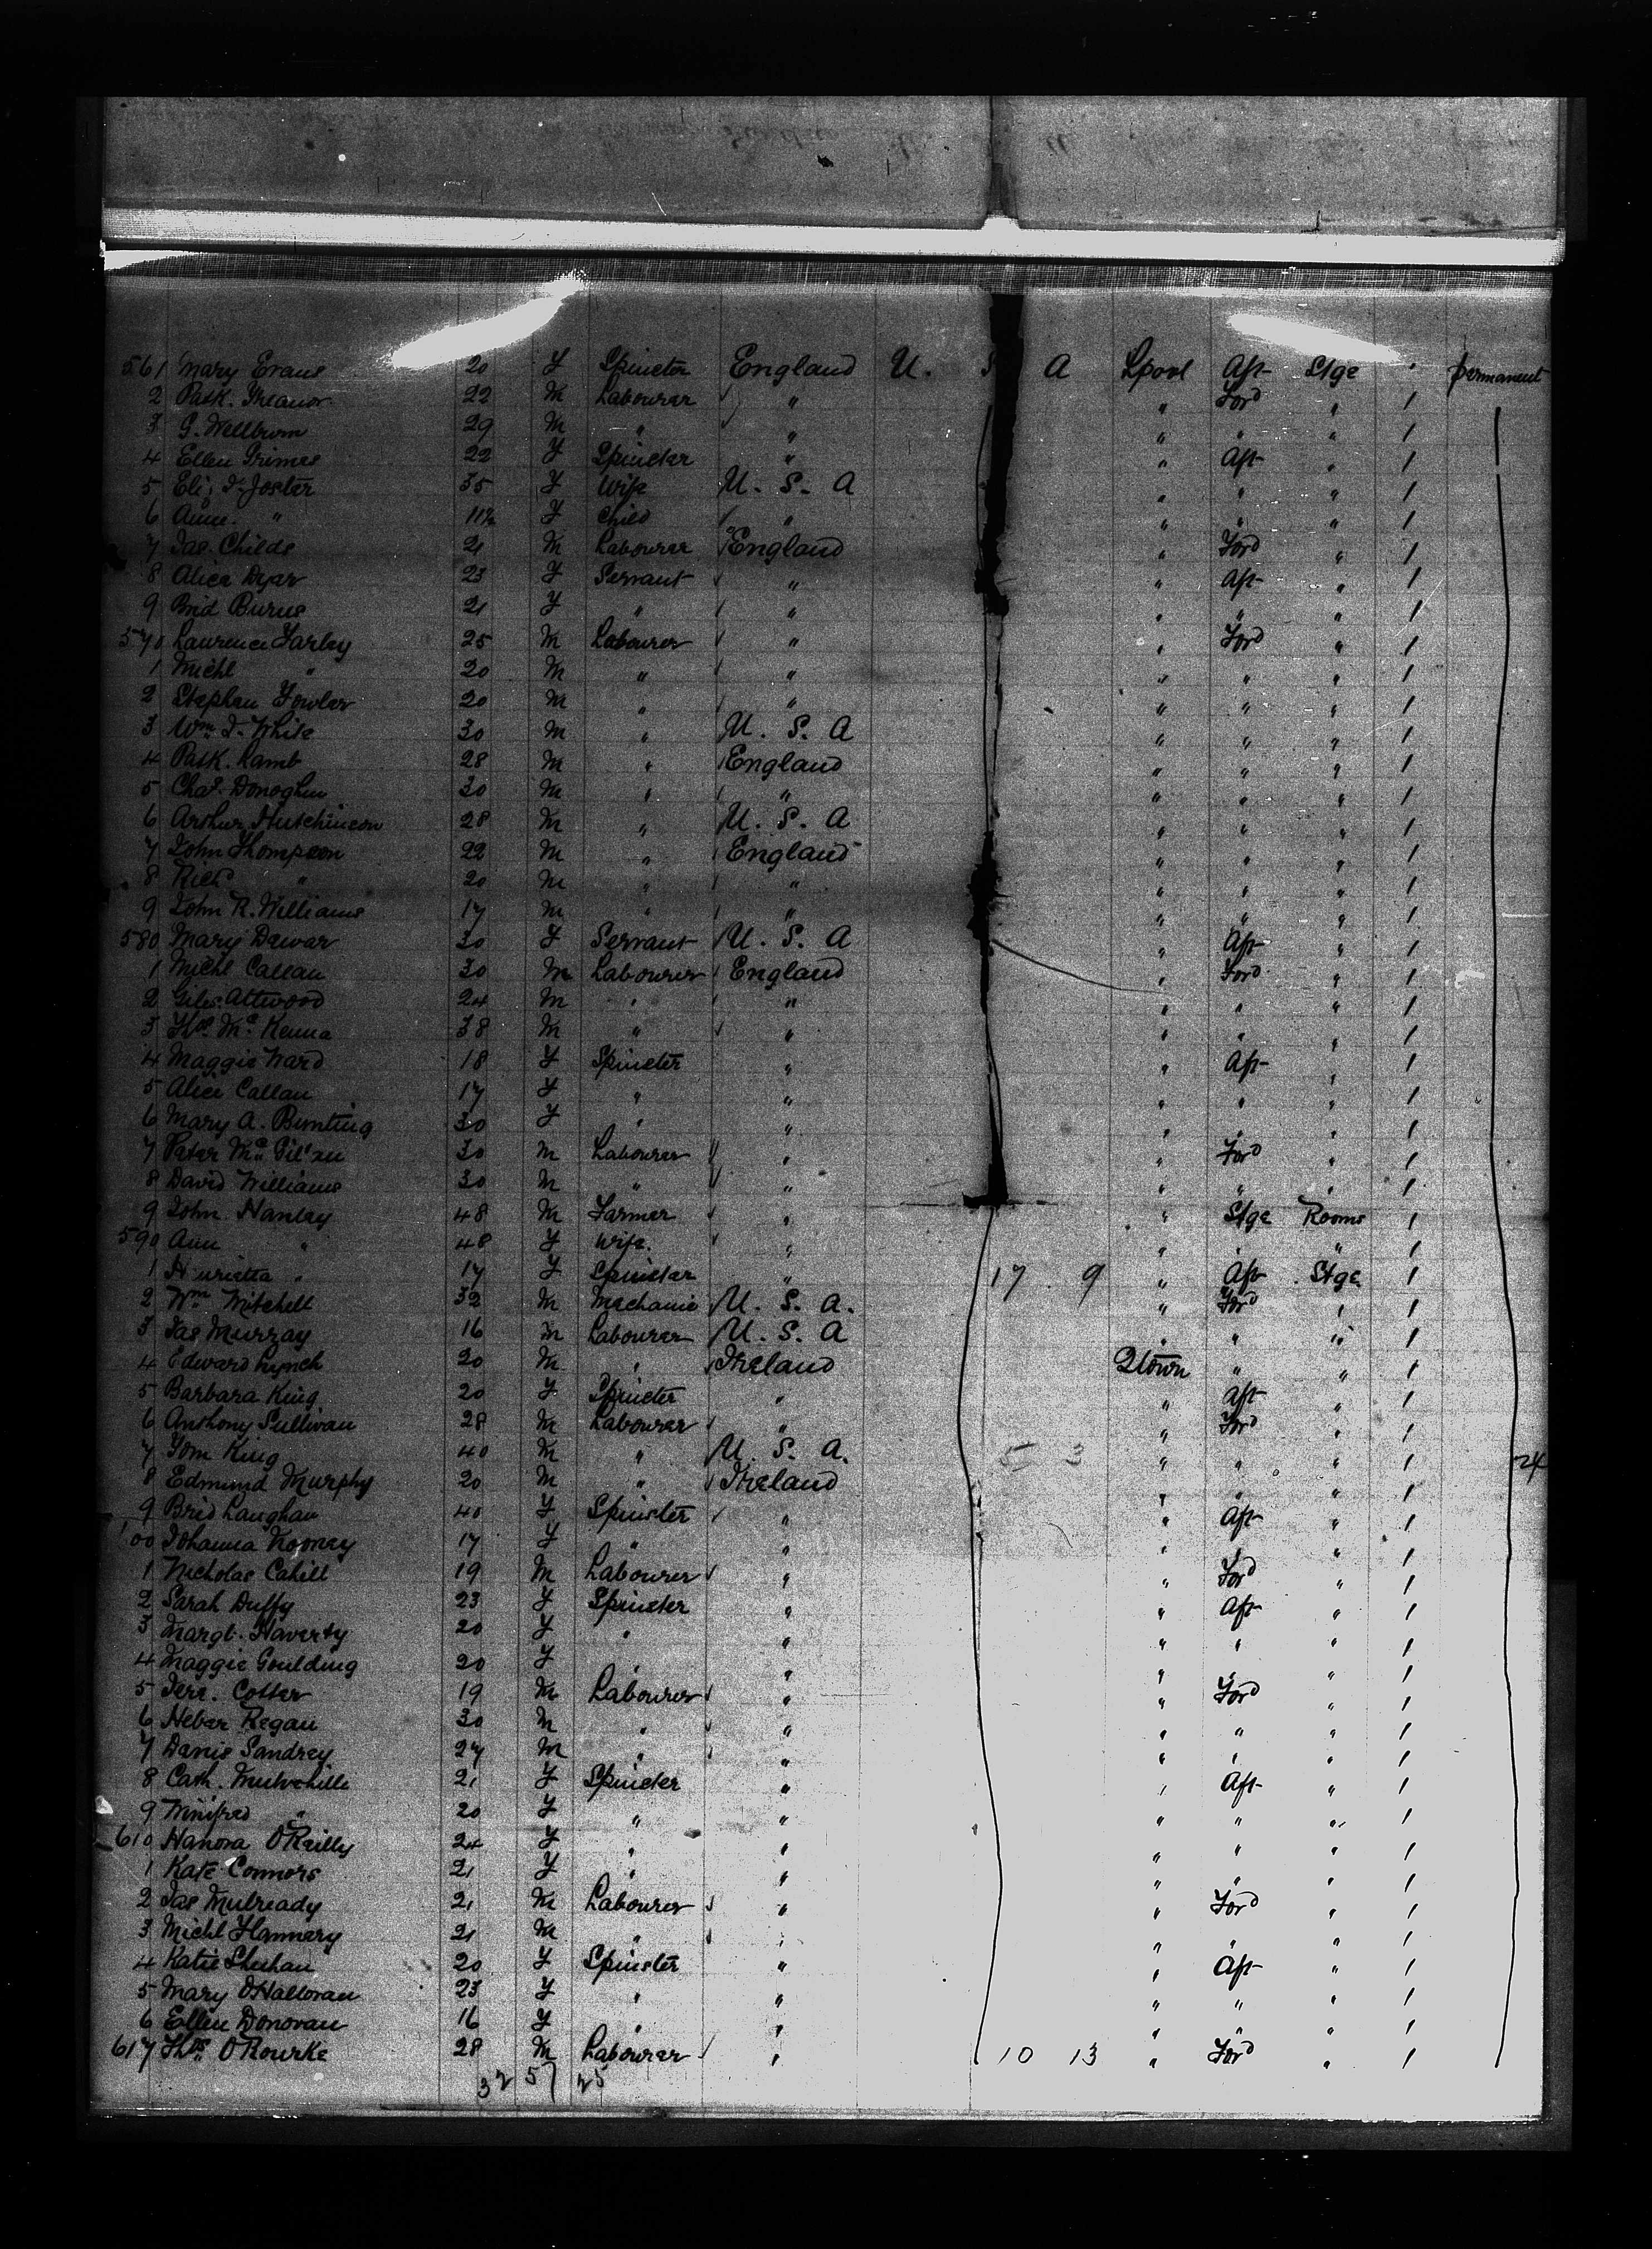 561 Mary Evans 20 F Spinster England U. S A Lpool Aft Stge 1 permanent
2 Patk. Treanor 22 M Labourer " " Ford " 1
3 G. Wellburn 29 M " " " " " 1
4 Ellen Grimes 22 F Spinster " " Aft " 1
5 Eliz. F. Foster 35 F Wife U. S. A " " " 1
6 Ann " 11½ F Child " " " " 1
7 Jas. Childs 21 M Labourer England " Ford " 1
8 Alice Dyar 23 F Servant " " Aft " 1
9 Brid Burns 21 F " " " " " 1
570 Laurence Farley 25 M Labourer " " Ford " 1
1 Michl " 20 M " " " " " 1
2 Stephen Fowler 20 M " " " " " 1
3 Wm. J. White 30 M " U. S. A " " " 1
4 Patk. Lamb 28 M " England " " " 1
5 Chas. Donoghue 30 M " " " " " 1
6 Arthur Hutchinson 28 M " U. S. A " " " 1
7 John Thompson 22 M " England " " " 1
8 Richd " 20 M " " " " " 1
9 John R. Williams 17 M " " " " " 1
580 Mary Dewar 30 F Servant U. S. A " Aft " 1
1 Michl Callan 30 M Labourer England " Ford " 1
2 Giles Attwood 24 M " " " " " 1
3 Thos. McKenna 38 M " " " " " 1
4 Maggie Ward 18 F Spinster " " Aft " 1
5 Alice Callan 17 F " " " " " 1
6 Mary A. Bunting 30 F " " " " " 1
7 Peter 30 M Labourer " " Ford " 1
8 David Williams 30 M " " " " " 1
9 John Hanley 48 M Farmer " " Stge Rooms 1
590 Ann " 48 F Wife " " " " 1
1 Hurietta " 17 F Spinster " 17 9 " Aft Stge 1
2 Wm. Mitchell 32 M Mechanic U. S. A. " Ford " 1
3 Jas Murray 16 M Labourer U. S. A " " " 1
4 Edward Lynch 20 M " Ireland Qtown " " 1
5 Barbara King 20 F Spinster " " Aft " 1
6 Anthony Sullivan 28 M Labourer " " Ford " 1
7 Tom King 40 M " U. S. A. 5 3 " " " 1 24
8 Edmund Murphy 20 M " Ireland " " " 1
9 Brid Laughan 40 F Spinster " " Aft " 1
00 Johanna Noonay 17 F " " " " " 1
1 Nicholas Cahill 19 M Labourer " " Ford " 1
2 Sarah Duffy 23 F Spinster " " Aft " 1
3 Margt. Haverty 20 F " " " " " 1
4 Maggie Goulding 20 F " " " " " 1
5 Jere. Cotter 19 M Labourer " " Ford " 1
6 Heber Regan 30 M " " " " " 1
7 Danis Sandrey 27 M " " " " " 1
8 Cath. Mulvehille 21 F Spinster " " Aft " 1
9 Winifred " 20 F " " " " " 1
610 Hanora OReilly 24 F " " " " " 1
1 Kate Connors 21 F " " " " " 1
2 Jas Mulready 21 M Labourer " " Ford " 1
3 Michl Flannery 21 M " " " " " 1
4 Katie Sheehan 20 F Spinster " " Aft " 1
5 Mary OHalloran 23 F " " " " " 1
6 Ellen Donovan 16 F " " " " " 1
617 Thos. ORourke 28 M Labourer " 10 13 " Ford " 1
32 57 25